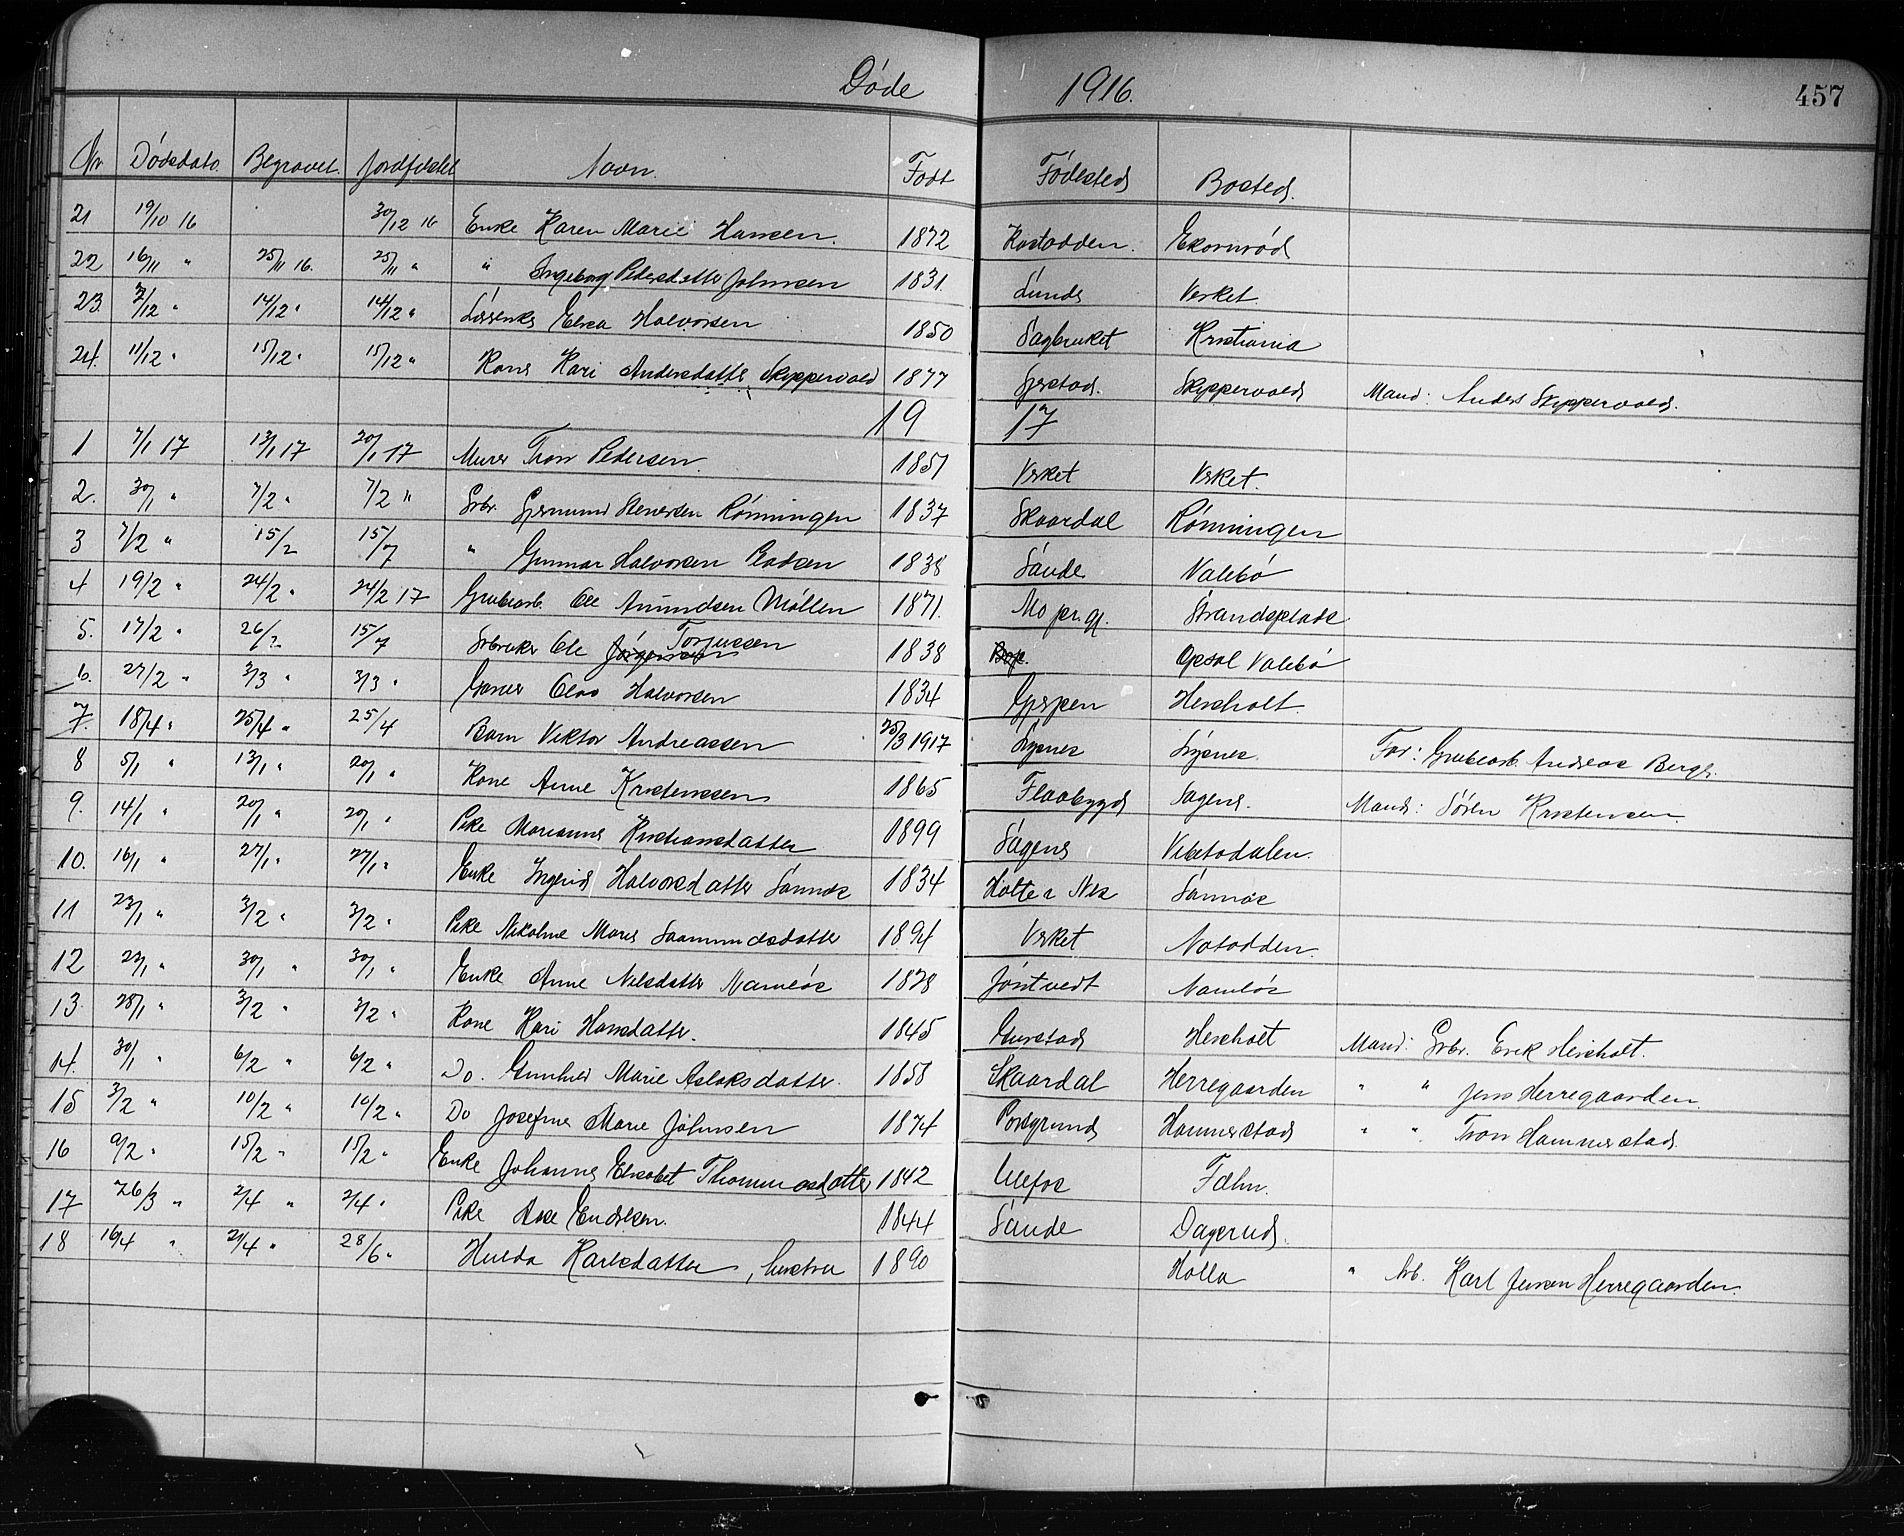 Døde 1916. 457
Nr Dødsdato. Begravet. Jordfestet Navn. Født Fødested Bosted.
21 19/10 16 30/12 16 Enke Karen Marie Hansen. 1872 Ekornrød
22 16/11 " 25/11 16. 25/11 " " Ingeborg Pedersdatter Johnsen 1831 Lunde Verket.
23. 3/12 " 14/12 " 14/12 " Elisa Halvorsen 1850 Sagbruket Kristiania
24. 11/12 " 15/12 " 15/12 " Kone Kari Andersdatter Skyppervold 1877 Gjerstad. Skyppervold Mand: Anders Skyppervold.
19 17
1 7/1 17 13/1 17 20/1 17 Murer Tron Pedersen. 1851 Verket Verket.
2. 30/1 " 7/2 " 7/2 " Gbr. Gjermund Stenersen Rønningen 1837 Skaardal Rønningen
3 7/2 " 15/2 15/7 " Gunnar Halvorsen Pladsen 1838 Saude Valebø
4 19/2 " 24/2 " 24/2 17 Grubearb. Ole Amundsen Møllen 1871. Mo pr.gj. Strandsplads
5. 17/2 " 26/2 15/7 Gbruker Ole Jørgensen Torjussen 1838 Opsal Valebø
6. 27/2 " 3/3 " 3/3 " Olav Halvorsen 1834 Gjerpen Hersholt.
7. 18/4 " 25/4 " 25/4 Barn Viktor Andreassen 25/3 1917 Lysnes Lysnes. Far: Grubearb. Andreas Bergh.
8 5/1 " 13/1 " 20/1 " Kone Anne Kristenssen 1865 Flaabygd Sagene. Mand: Søren Kristensen
9. 14/1 " 20/1 " 20/1 " Pike Marianne Kristiansdatter 1899 Sagene Vibetodalen.
10. 16/1 " 27/1 " 27/1 " Enke Ingerid Halvorsdatter Sannæs 1834 Holte i Nes Sannæs
11 23/1 " 3/2 " 3/2 " Pike Nikoline Marie Saamundsdatter 1894 Verket Notodden.
12 23/1 " 30/1 " 30/1 " Enke Anne Nilsdatter Namløs 1828 Jøntvedt Namløs
13. 28/1 " 3/2 " 3/2 " Kone Kari Hansdatter. 1845 Gurstad Hersholt Mand: Gbr. Erik Hersholt.
14. 30/1 " 6/2 " 6/2 " Do. Gunhild Marie Aslaksdatter. 1858 Skaardal Herregaarden " " Jens Herregaarden.
15 3/2 " 10/2 " 10/2 " Do Josefine Marie Johnsen 1874 Porsgrund Hammerstad " " Tron Hammerstad
16 9/2 " 15/2 " 15/2 " Enke Johanne Elisabet Thommasdatter 1842 Ulefos Fæhn.
17 26/3 " 2/4 " 2/4 " Pike Aase Endresen. 1844 Saude Dagsrud.
18 16/4 " 21/4 " 28/6 " Hulda Karlsdatter, hustru 1890 Holla " Arb. Karl Jensen Herregaarden.